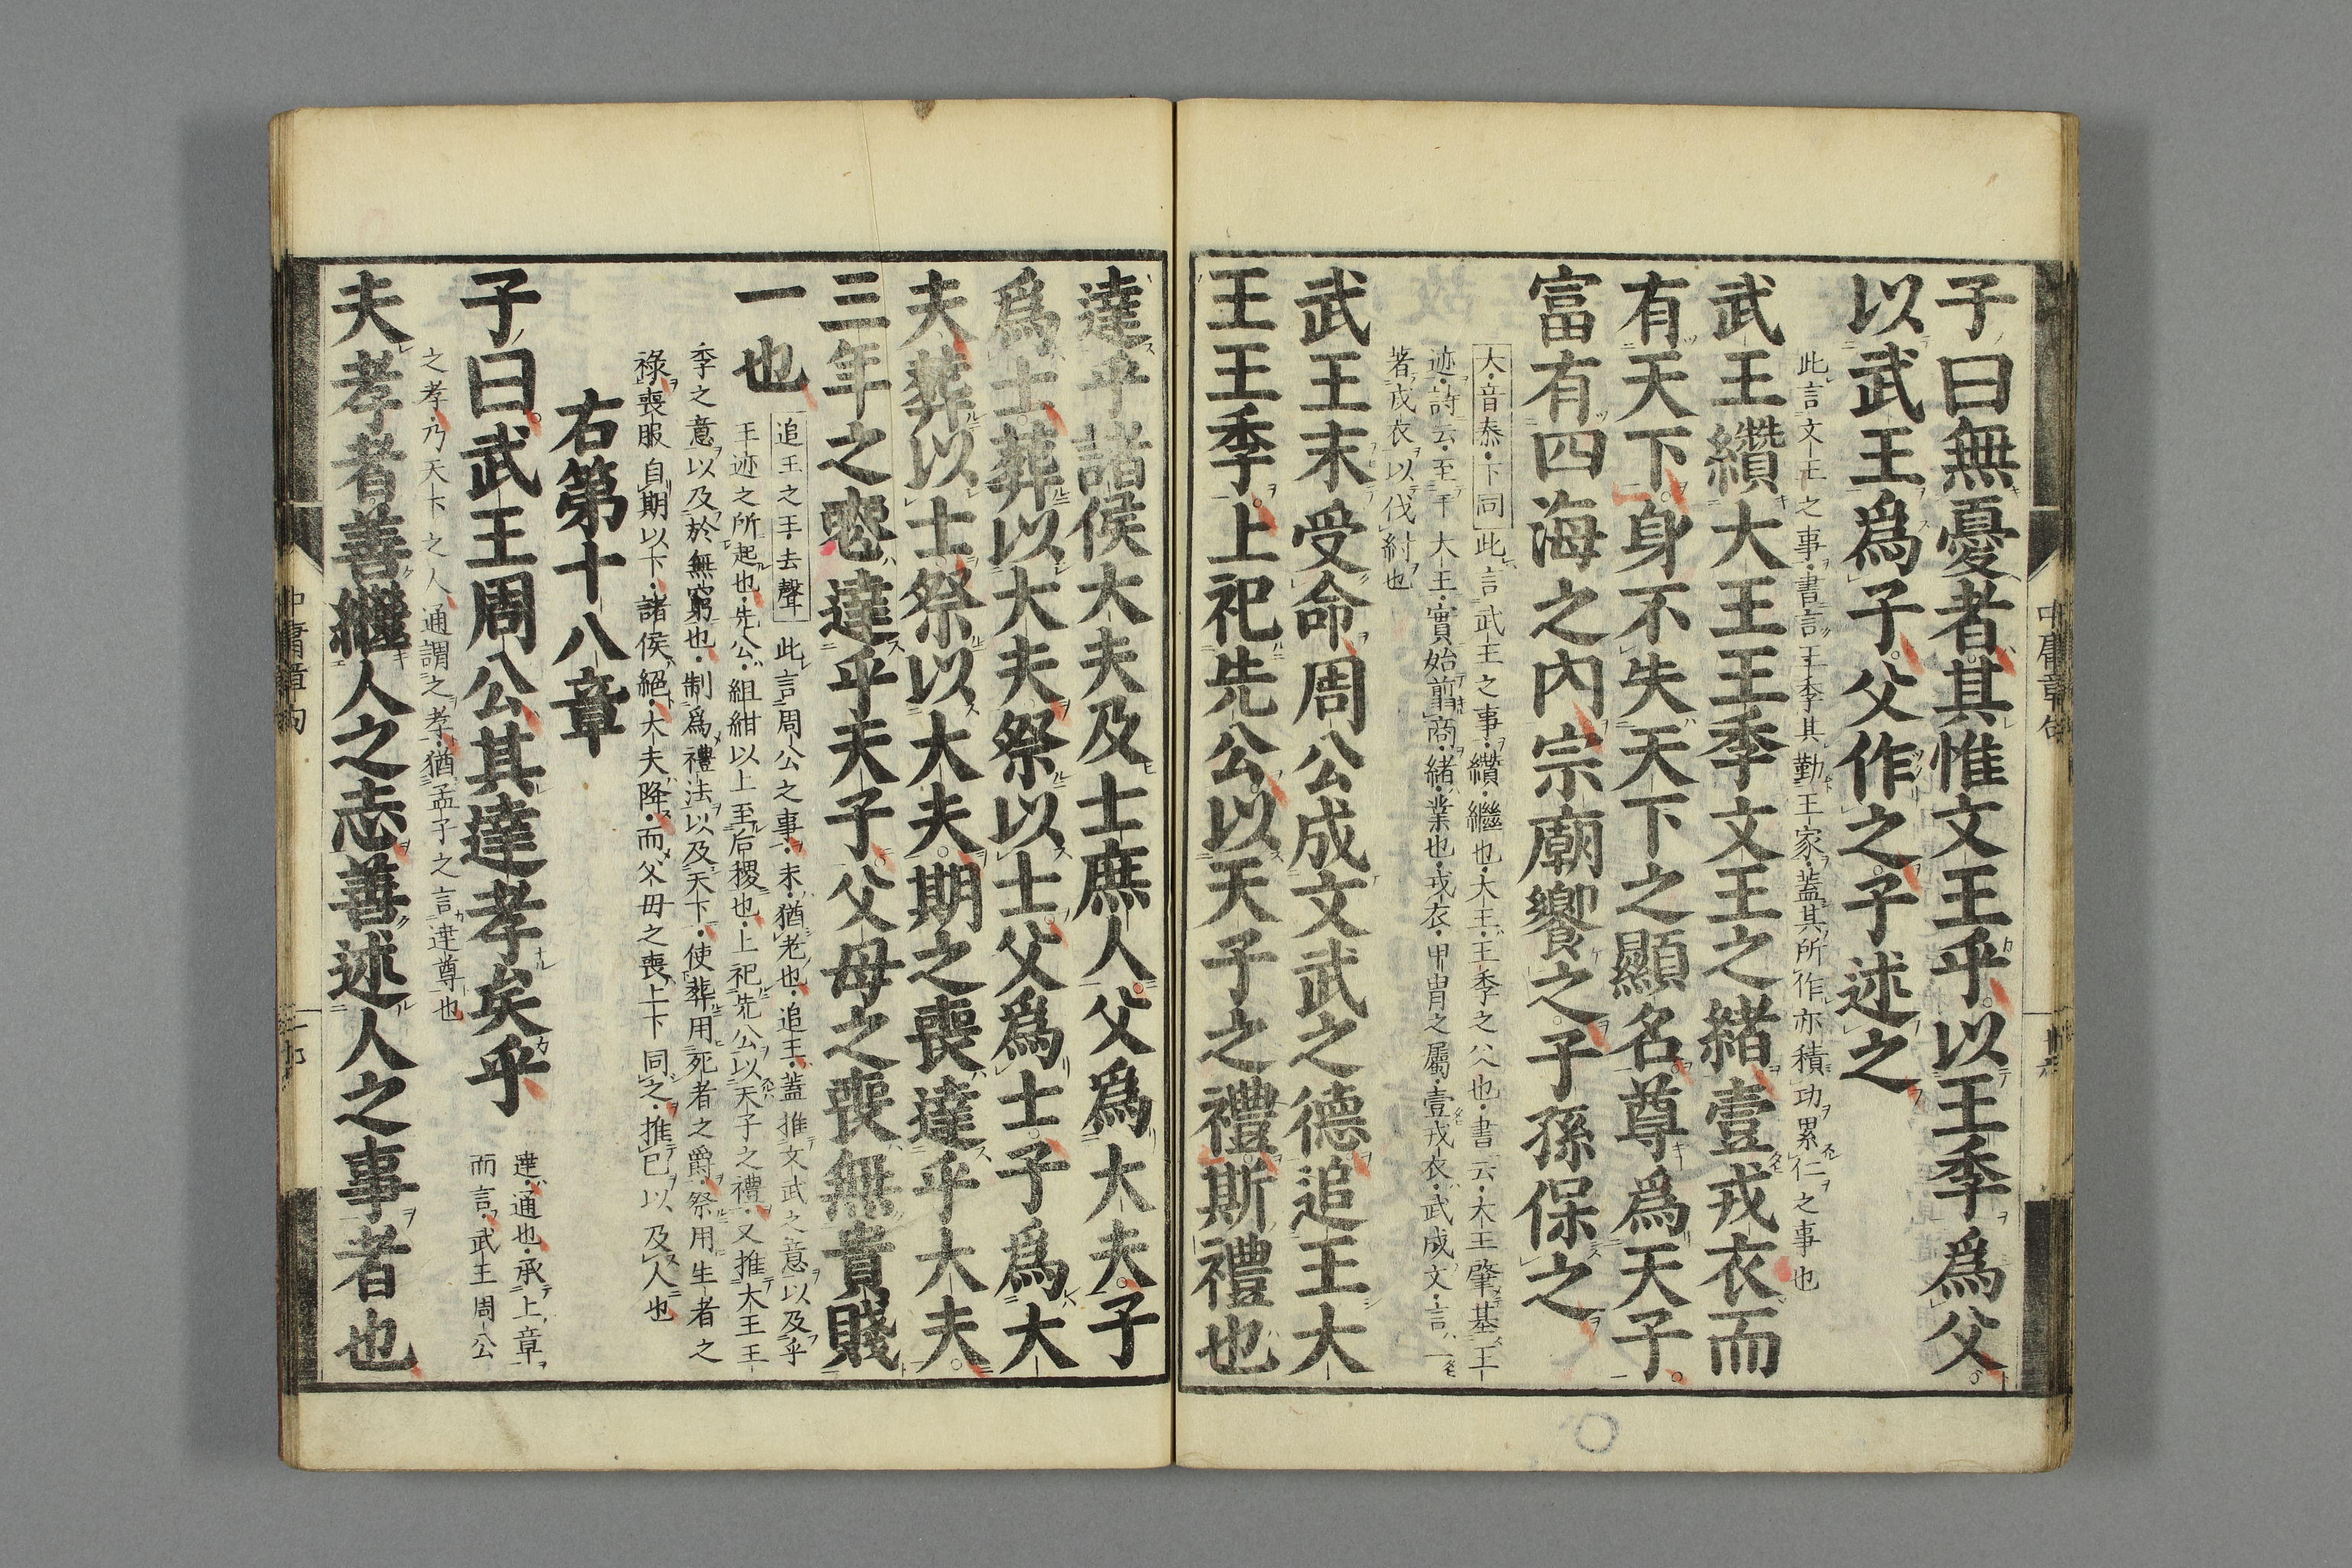 子曰無憂者其惟文王乎以王季爲父
以武王爲子父作之子述之
此言文王之事書言王季其勤王家蓋其所作亦積功累仁之事也
武王纘大王王季文王之緒壹戎衣而
有天下身不失天下之顯名尊爲天子
富有四海之內宗廟饗之子孫保之
大音泰下同此言武王之事纘繼也大王王季之父也書云大王肇基王
迹詩云至于大王實始翦商緒業也戎衣甲冑之屬壹戎衣武成文言一
著戎衣以伐紂也
武王末受命周公成文武之德追王大
王王季上祀先公以天子之禮斯禮也
達乎諸侯大夫及士庶人父爲大夫子
爲士葬以大夫祭以士父爲士子爲大
夫葬以士祭以大夫期之喪達乎大夫
三年之喪達乎天子父母之喪無貴賤
一也
追王之王去聲此言周公之事末猶老也追王蓋推文武之意以及乎
王迹之所起也先公組紺以上至后稷也上祀先公以天子之禮又推大王王
季之意以及於無窮也制爲禮法以及天下使葬用死者之爵祭用生者之
祿喪服自期以下諸侯絕大夫降而父母之喪上下同之推已以及人也
右第十八章
子曰武王周公其達孝矣乎
達通也承上章
而言武王周公
之孝乃天下之人通謂之孝猶孟子之言達尊也
夫孝者善繼人之志善述人之事者也
中庸章句
中庸章句